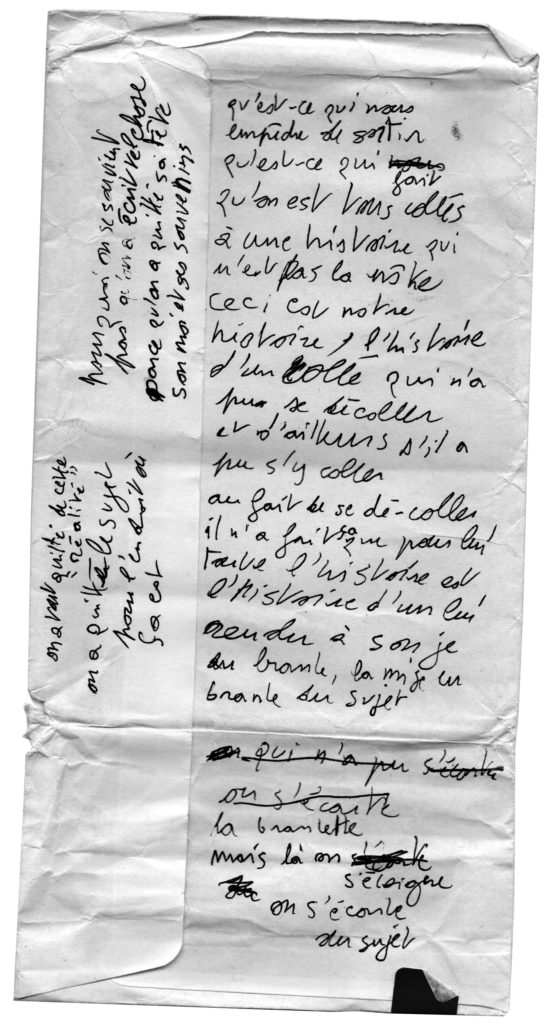 qu'est-ce qui nous
empêche de sortir
qu'est-ce qui nous
fait
qu'on est tous collés
à une histoire qui
n'est pas la nôtre
ceci est notre
histoire, l'histoire
d'un collé qui n'a
pu se décoller
et d'ailleurs s'il a
pu s'y coller
au fait de se dé-coller
il n'a fait ça que pour lui
toute l'histoire est
l'histoire d'un lui
rendu à son je
du branle, la mise en
branle du sujet
on qui n'a pu s'écarte
on s'écarte
la branlette
mais là on s'écarte
s'éloigne
on s'écarte
du sujet
pourquoi on se souvient
pas qu'on a écrit telchose
parce qu'on a quitté sa tête
son moi et ses souvenirs
on avait quitté de cette
"réalité"
on a quitté le sujet
pour l'endroit où
ça est